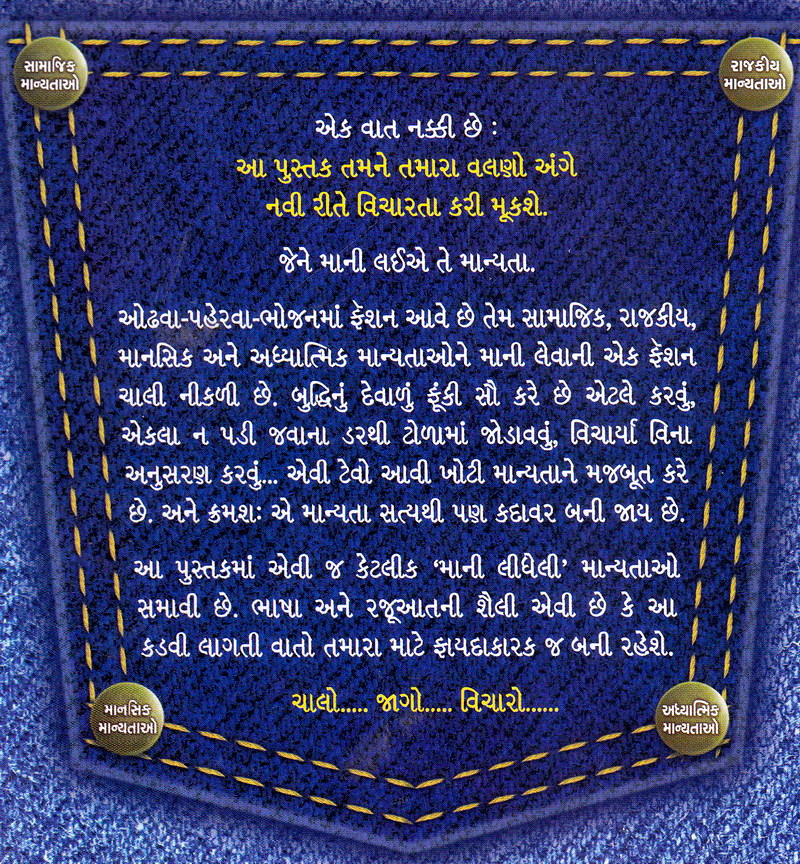 સામાજિક
માન્યતાઓ
રાજકીય
માન્યતાઓ
એક વાત નક્કી છે :
આ પુસ્તક તમને તમારા વલણો અંગે
નવી રીતે વિચારતા કરી મૂકશે.
જેને માની લઈએ તે માન્યતા.
ઓઢવા-પહેરવા-ભોજનમાં ફૅશન આવે છે તેમ સામાજિક, રાજકીય,
માનસિક અને અધ્યાત્મિક માન્યતાઓને માની લેવાની એક ફૅશન
ચાલી નીકળી છે. બુદ્ધિનું દેવાળું ફૂંકી સૌ કરે છે એટલે કરવું,
એકલા ન પડી જવાના ડરથી ટોળામાં જોડાવવું, વિચાર્યા વિના
અનુસરણ કરવું... એવી ટેવો આવી ખોટી માન્યતાને મજબૂત કરે
છે. અને ક્રમશઃ એ માન્યતા સત્યથી પણ કદાવર બની જાય છે.
આ પુસ્તકમાં એવી જ કેટલીક ‘માની લીધેલી’ માન્યતાઓ
સમાવી છે. ભાષા અને રજૂઆતની શૈલી એવી છે કે આ
કડવી લાગતી વાતો તમારા માટે ફાયદાકારક જ બની રહેશે.
ચાલો...... જાગો..... વિચારો......
માનસિક
માન્યતાઓ
અધ્યાત્મિક
માન્યતાઓ